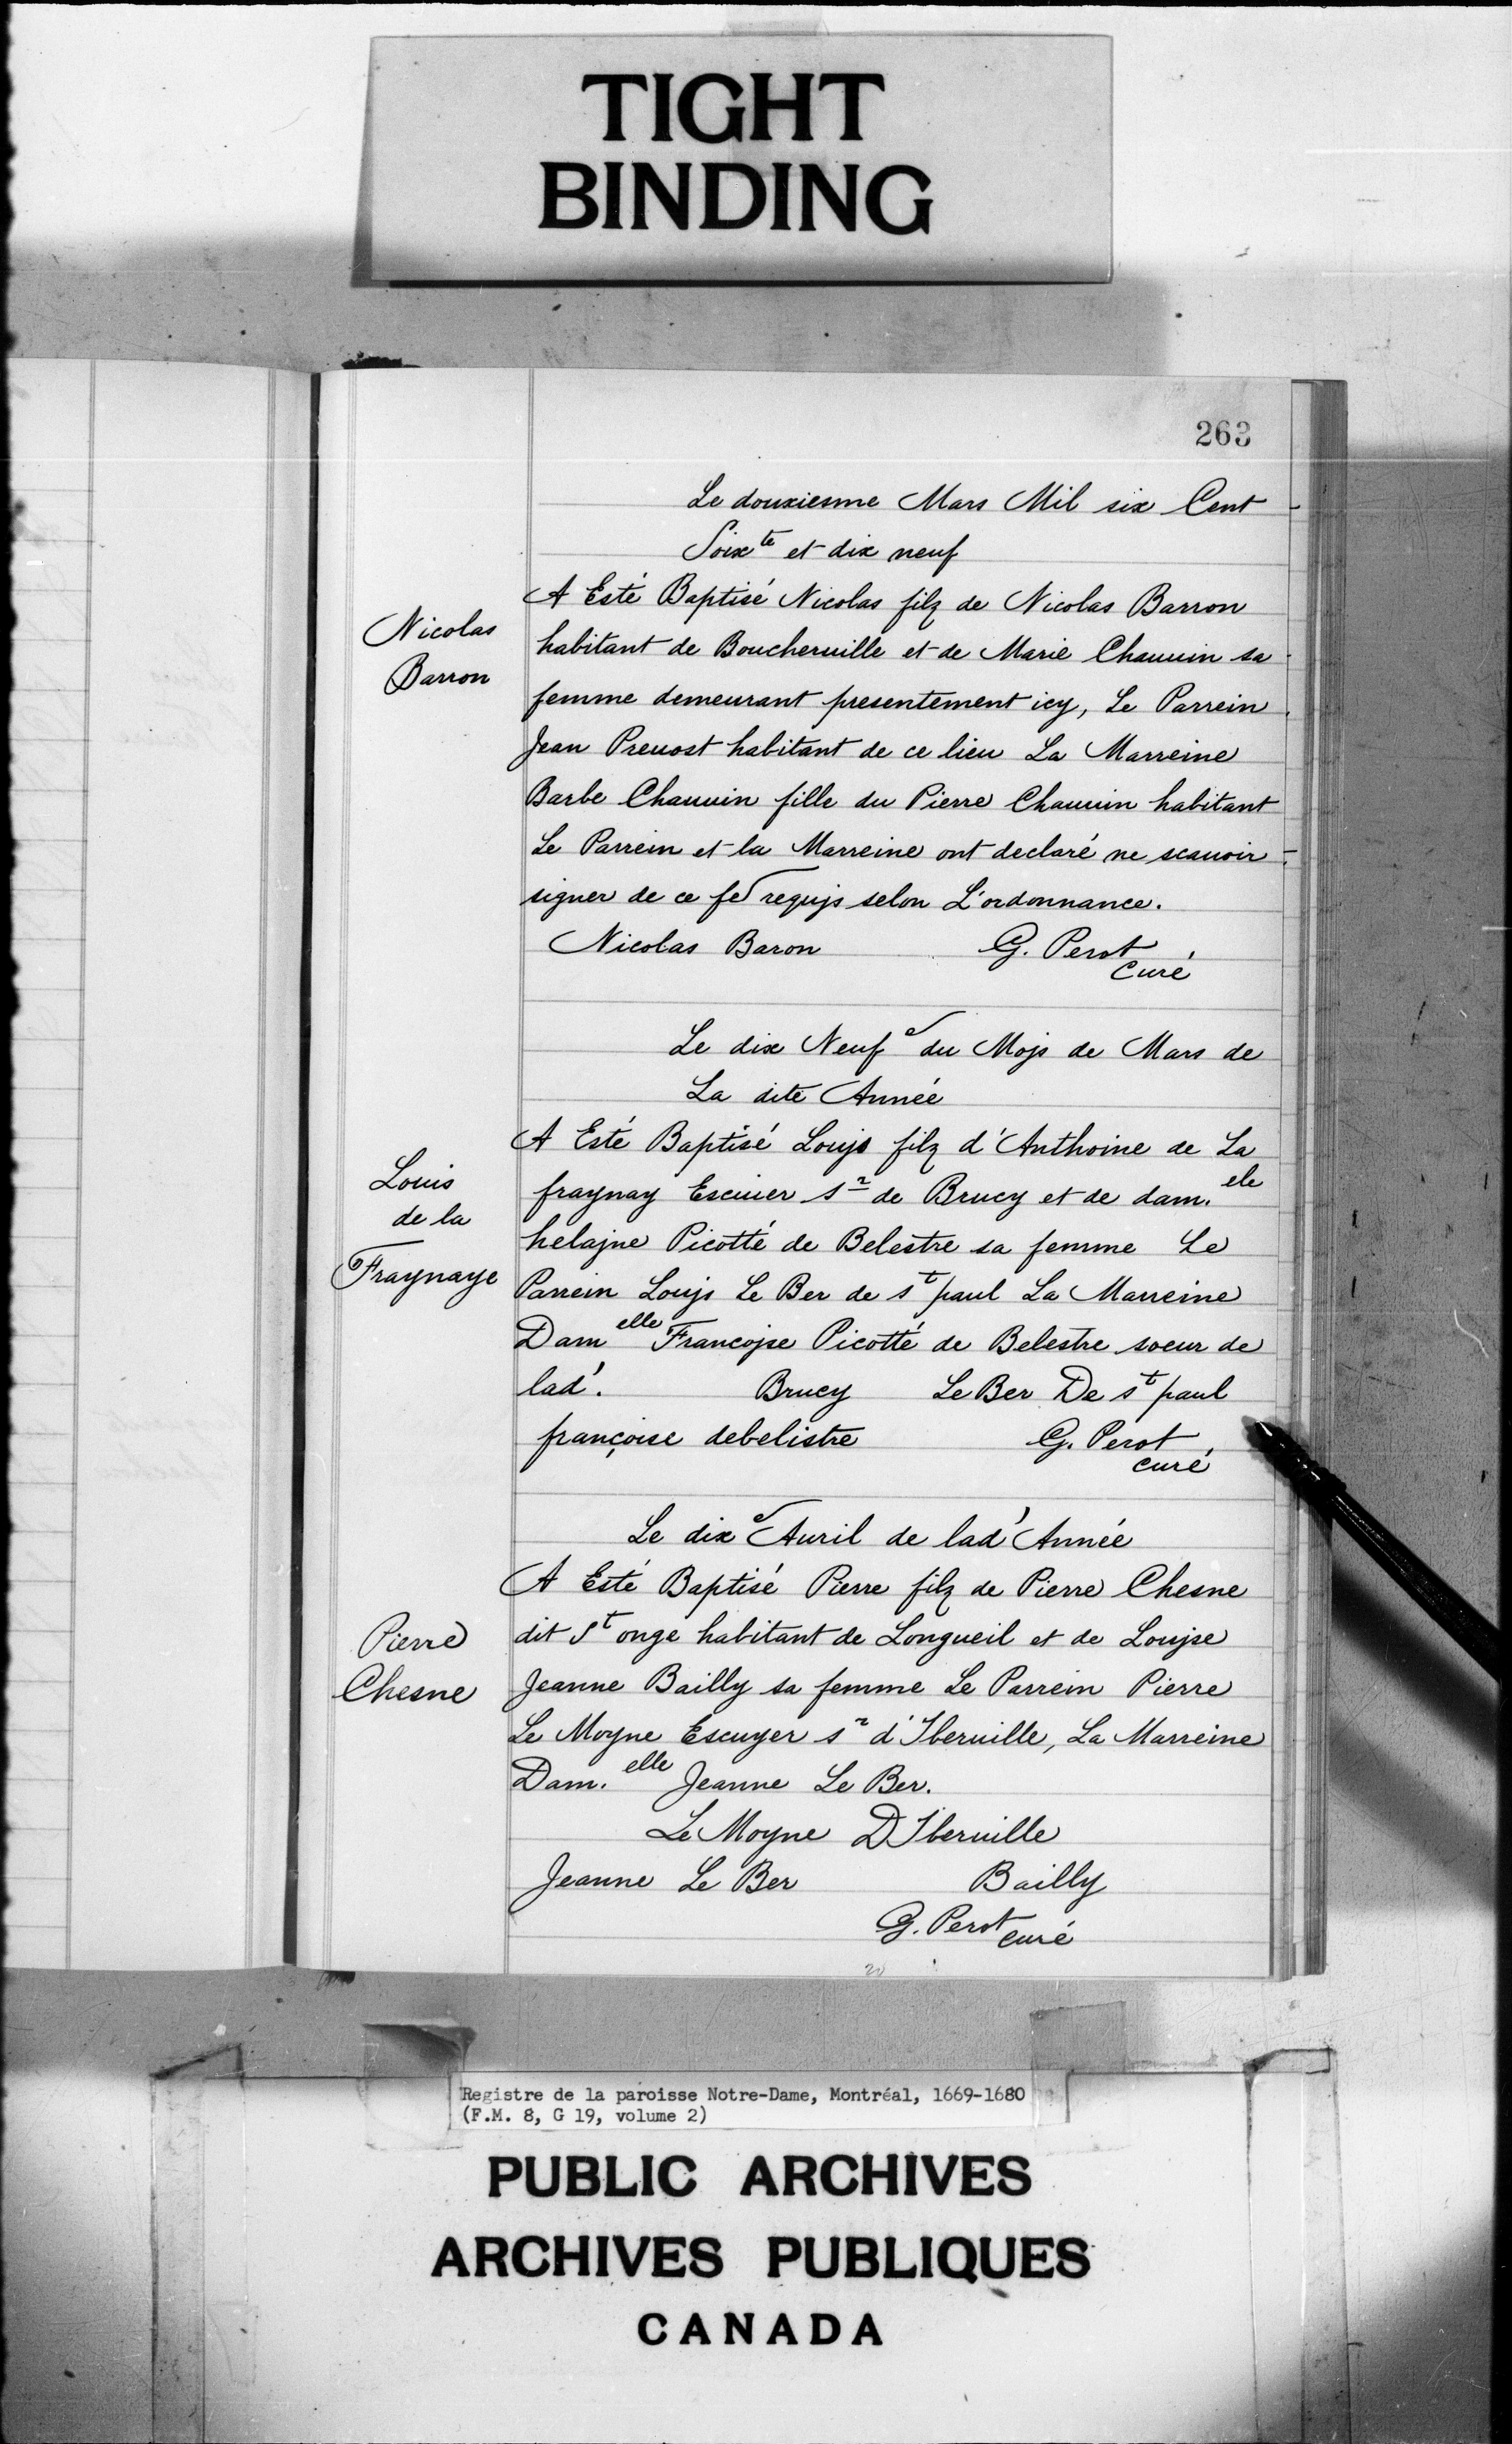 TIGHT
BINDING
263
Le douxiesme Mars Mil six Cent
Soixte et dix neuf
Nicolas
Barron
A Esté Baptisé Nicolas filz de Nicolas Barron
habitant de Boucheruille et de Marie Chauuin sa
femme demeurant presentement icy, Le Parrein
Jean Preuost habitant de ce lieu La Marreine
Barbe Chauuin fille du Pierre Chauuin habitant
Le Parrein et la Marreine ont declaré ne scauoir
signer de ce fe requis selon L'ordonnance.
Nicolas Baron G. Perot
Curé
Le dix Neufe du Mojs de Mars de
La dite Année
Louis
de la
Fraynaye
A Esté Baptisé Loujs filz d'Anthoine de La
fraynay Escuier sr de Brucy et de dam.ele
helajne Picotté de Belestre sa femme Le
Parrein Loujs Le Ber de st paul La Marreine
Damelle Francojse Picotté de Belestre soeur de
lad'. Brucy Le Ber De st paul
françoise debelistre G. Perot
curé
Le dixe Auril de lad' Année
Pierre
Chesne
A Esté Baptisé Pierre filz de Pierre Chesne
dit St onge habitant de Longueil et de Loujse
Jeanne Bailly sa femme Le Parrein Pierre
Le Moyne Escuyer sr d'Iberuille, La Marreine
Dam.elle Jeanne Le Ber.
Le Moyne D Iberuille
Jeanne Le Ber Bailly
G. Perot curé
20
Registre de la paroisse Notre-Dame, Montréal, 1669-1680
(F.M. 8, G 19, volume 2)
PUBLIC ARCHIVES
ARCHIVES PUBLIQUES
CANADA